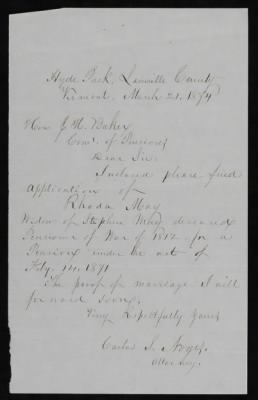 Hyde Park, Lamoille County
Vermont. March 21. 1874
Hon J. H. Baker
Com'r. of Pensions
Dear Sir.
Inclosed please find
Application of
Rhoda May
Widow of Stephen May deceased
Pensioner of War of 1812 for a
Pension under the act of
Feby. 14. 1871
The proof of marriage I will
forward soon.
Very Respectfully Yours
Carlos S. Noyes.
Attorney.